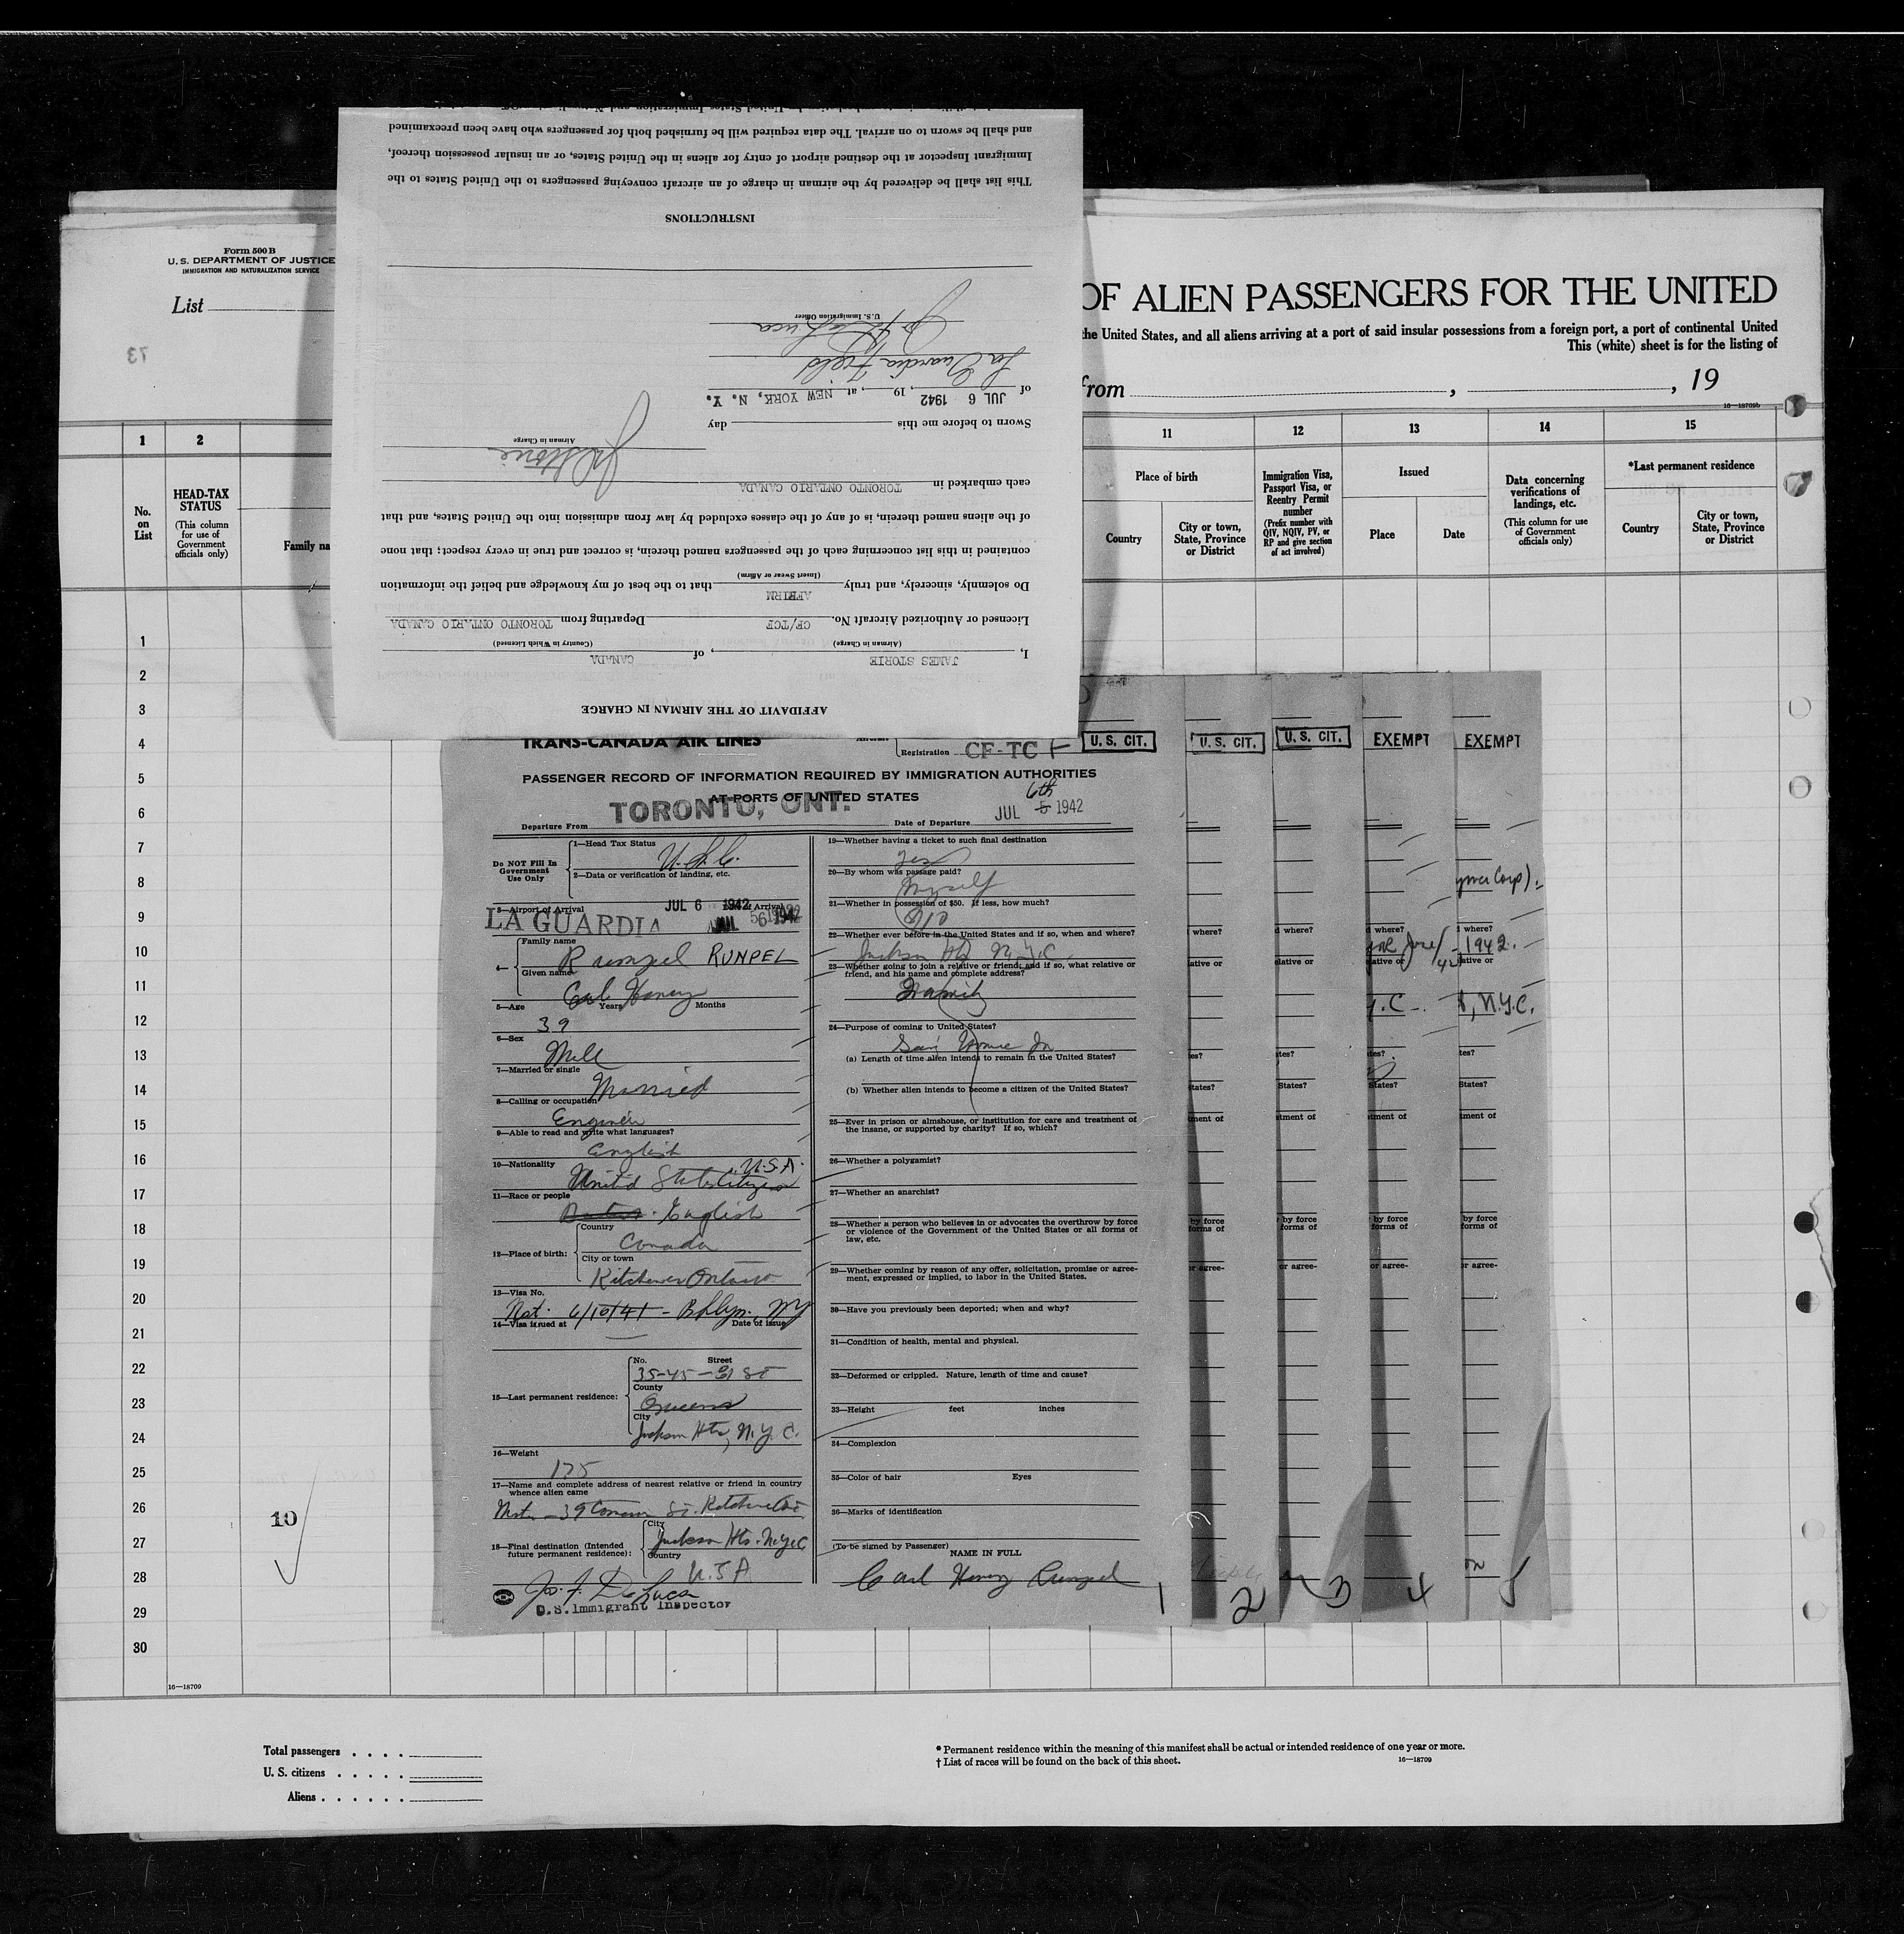 Form 500 B
U. S. DEPARTMENT OF JUSTICE
IMMIGRATION AND NATURALIZATION SERVICE
List
73
OF ALIEN PASSENGERS FOR THE UNITED
the United States, and all aliens arriving at a port of said insular possessions from a foreign port, a port of continental United
This (white) sheet is for the listing of
from , , 19
16—18709b
1 2 11 12 13 14 15
No. on List
HEAD-TAX STATUS
(This column for use of Government officials only)
Family na
Place of birth
Country
City or town, State, Province or District
Immigration Visa, Passport Visa, or Reentry Permit number
(Prefix number with QIV, NQIV, PV, or RP and give section of act involved)
Issued
Place
Date
Data concerning verifications of landings, etc.
(This column for use of Government officials only)
*Last permanent residence
Country
City or town, State, Province or District
AFFIDAVIT OF THE AIRMAN IN CHARGE
I, JAMES STORIE, of CANADA
(Airman in Charge) (Country in Which Licensed)
Licensed or Authorized Aircraft No. CF/TCF Departing from TORONTO ONTARIO CANADA
AFFIRM
Do solemnly, sincerely, and truly that to the best of my knowledge and belief the information
(Insert Swear or Affirm)
contained in this list concerning each of the passengers named therein, is correct and true in every respect; that none
of the aliens named therein, is of any of the classes excluded by law from admission into the United States, and that
each embarked in TORONTO ONTARIO CANADA
Airman in Charge
Sworn to before me this day
of JUL 6 1942, 19 , at NEW YORK, N. Y.
La Guardia Field
U. S. Immigration Officer
INSTRUCTIONS
This list shall be delivered by the airman in charge of an aircraft conveying passengers to the United States to the
Immigrant Inspector at the destined airport of entry for aliens in the United States, or an insular possession thereof,
and shall be sworn to on arrival. The data required will be furnished both for passengers who have been preexamined
1
2
3
4
5
6
7
8
9
10
11
12
13
14
15
16
17
18
19
20
21
22
23
24
25
26
27
28
29
30
10
TRANS-CANADA AIR LINES
Registration CF-TCF
U. S. CIT.
U. S. CIT.
U. S. CIT.
EXEMPT
EXEMPT
PASSENGER RECORD OF INFORMATION REQUIRED BY IMMIGRATION AUTHORITIES
AT PORTS OF UNITED STATES
Departure From TORONTO, ONT. Date of Departure JUL 5 1942
6th
Do NOT Fill In Government Use Only
1—Head Tax Status
U.S.C.
2—Data or verification of landing, etc.
3—Airport of Arrival
LA GUARDIA JUL 6 1942
4—
Family name
Rumpel RUNPEL
Given name
Carl Henry
5—Age Years Months
39
6—Sex
Male
7—Married or single
Married
8—Calling or occupation
Engineer
9—Able to read and write what languages?
English
10—Nationality
U.S.A.
United States Citizen
11—Race or people
English
12—Place of birth:
Country
Canada
City or town
Kitchener Ontario
13—Visa No.
Nat. 6/10/41 - Bklyn. NY
14—Visa issued at Date of issue
15—Last permanent residence:
No. Street
35-45-81 St
County
Queens
City
Jackson Hts, N.Y.C.
16—Weight
175
17—Name and complete address of nearest relative or friend in country whence alien came
18—Final destination (Intended future permanent residence):
City
Jackson Hts. N.Y.C
Country
U.S.A
Jos. F. DeLuca
U.S. Immigrant Inspector
19—Whether having a ticket to such final destination
yes
20—By whom was passage paid?
Myself
21—Whether in possession of $50. If less, how much?
22—Whether ever before in the United States and if so, when and where?
Jackson Hts N.Y.C.
23—Whether going to join a relative or friend; and if so, what relative or friend, and his name and complete address?
Family
24—Purpose of coming to United States?
(a) Length of time alien intends to remain in the United States?
(b) Whether alien intends to become a citizen of the United States?
25—Ever in prison or almshouse, or institution for care and treatment of the insane, or supported by charity? If so, which?
26—Whether a polygamist?
27—Whether an anarchist?
28—Whether a person who believes in or advocates the overthrow by force or violence of the Government of the United States or all forms of law, etc.
29—Whether coming by reason of any offer, solicitation, promise or agreement, expressed or implied, to labor in the United States.
30—Have you previously been deported; when and why?
31—Condition of health, mental and physical.
32—Deformed or crippled. Nature, length of time and cause?
33—Height feet inches
34—Complexion
35—Color of hair Eyes
36—Marks of identification
(To be signed by Passenger)
NAME IN FULL
Carl Henry Rumpel
1 2 3 4 5
1942.
N.Y.C.
16—18709
Total passengers . . . .
U. S. citizens . . . . .
Aliens . . . . . .
* Permanent residence within the meaning of this manifest shall be actual or intended residence of one year or more.
† List of races will be found on the back of this sheet. 16—18709